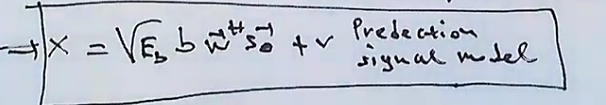 → X = √E_b b w⃗^H s⃗_0 + v Predection
signal model